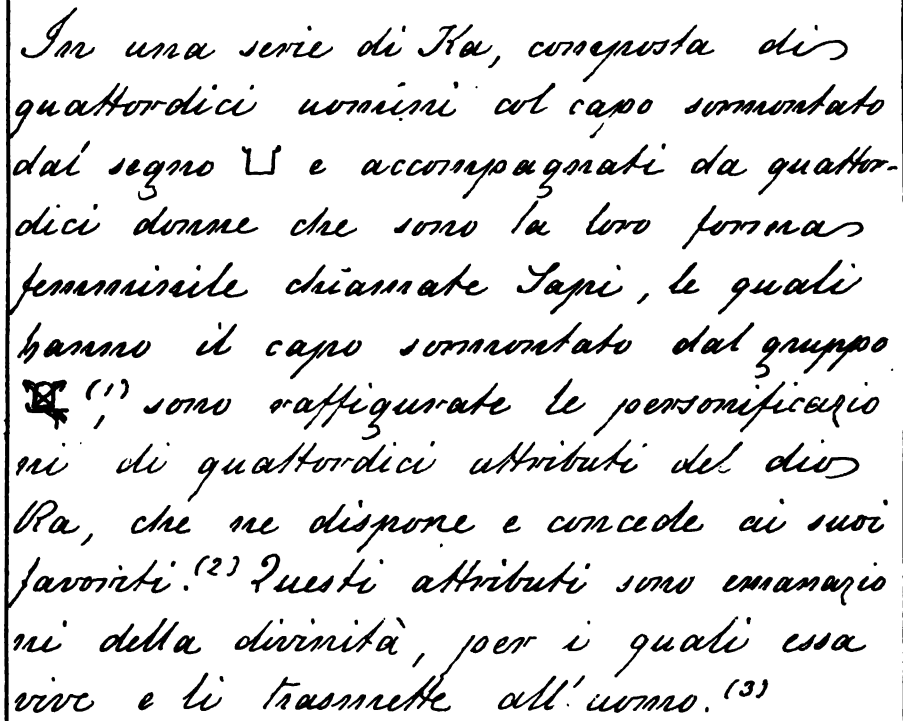 In una serie di Ka, composta di
quattordici uomini col capo sormontato
dal segno 𓂓 e accompagnati da quattor-
dici donne che sono la loro forma
femminile chiamate Sapi, le quali
hanno il capo sormontato dal gruppo
(1), sono raffigurate le personificazio
ni di quattordici attributi del dio
Ra, che ne dispone e concede ai suoi
favoriti.(2) Questi attributi sono emanazio
ni della divinità, per i quali essa
vive e li trasmette all'uomo.(3)